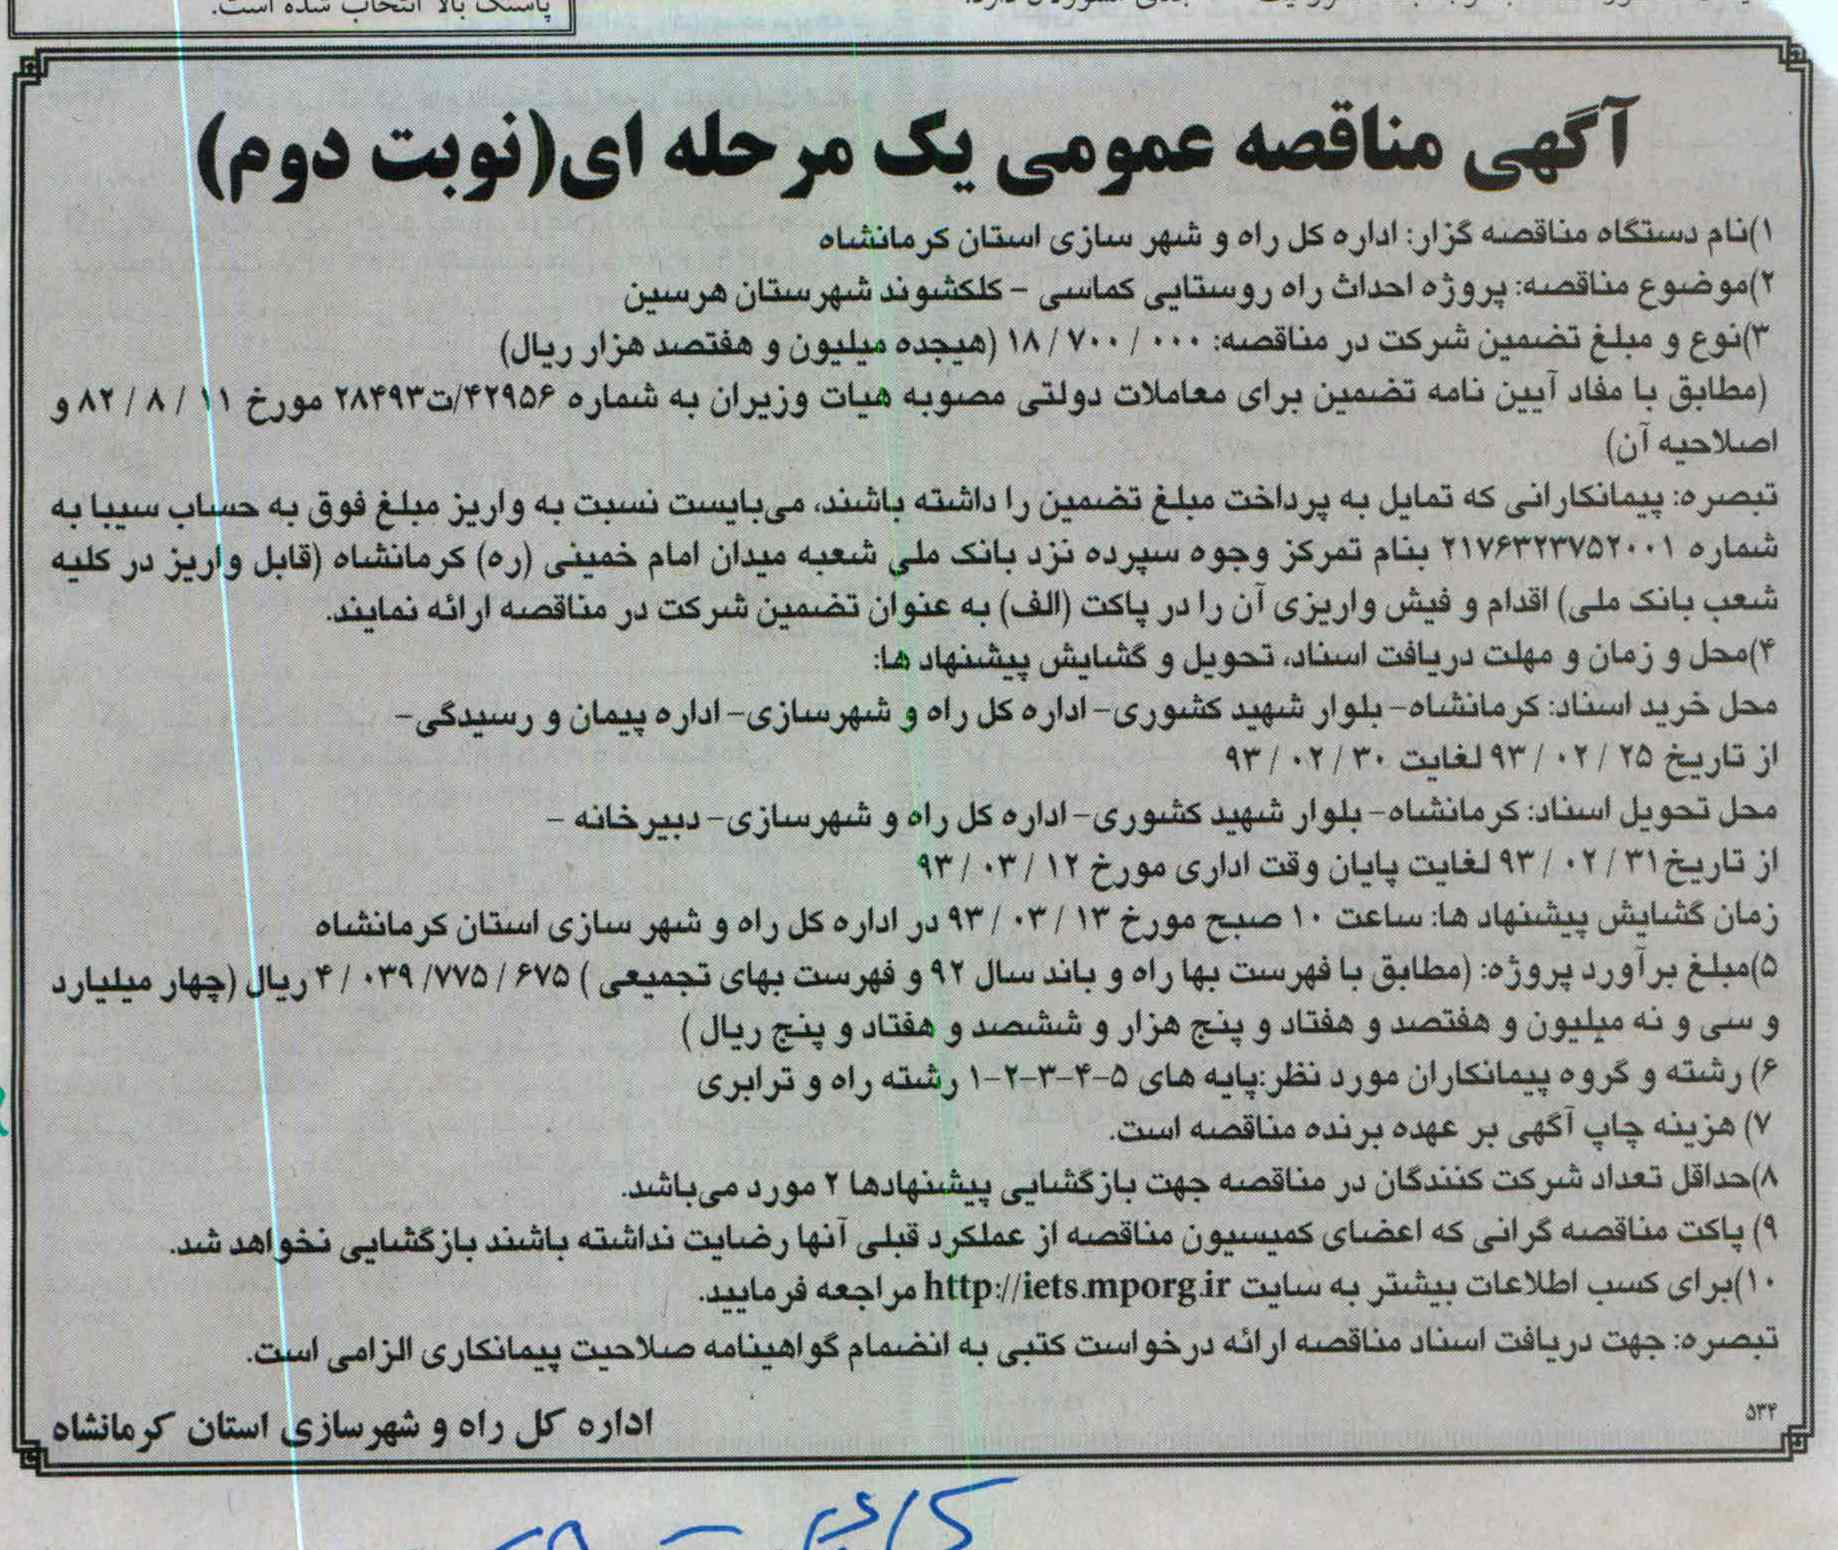 پاسنگ بالا انتخاب شده است.
آگهی مناقصه عمومی یک مرحله ای(نوبت دوم)
۱)نام دستگاه مناقصه گزار: اداره کل راه و شهر سازی استان کرمانشاه
۲)موضوع مناقصه: پروژه احداث راه روستایی کماسی – کلکشوند شهرستان هرسین
۳)نوع و مبلغ تضمین شرکت در مناقصه: ۰۰۰ / ۷۰۰ / ۱۸ (هیجده میلیون و هفتصد هزار ریال)
(مطابق با مفاد آیین نامه تضمین برای معاملات دولتی مصوبه هیات وزیران به شماره ۴۲۹۵۶/ت۲۸۴۹۳ مورخ ۱۱ / ۸ / ۸۲ و
اصلاحیه آن)
تبصره: پیمانکارانی که تمایل به پرداخت مبلغ تضمین را داشته باشند، می‌بایست نسبت به واریز مبلغ فوق به حساب سیبا به
شماره ۲۱۷۶۳۲۳۷۵۲۰۰۱ بنام تمرکز وجوه سپرده نزد بانک ملی شعبه میدان امام خمینی (ره) کرمانشاه (قابل واریز در کلیه
شعب بانک ملی) اقدام و فیش واریزی آن را در پاکت (الف) به عنوان تضمین شرکت در مناقصه ارائه نمایند.
۴)محل و زمان و مهلت دریافت اسناد، تحویل و گشایش پیشنهاد ها:
محل خرید اسناد: کرمانشاه– بلوار شهید کشوری– اداره کل راه و شهرسازی– اداره پیمان و رسیدگی–
از تاریخ ۲۵ / ۰۲ / ۹۳ لغایت ۳۰ / ۰۲ / ۹۳
محل تحویل اسناد: کرمانشاه– بلوار شهید کشوری– اداره کل راه و شهرسازی– دبیرخانه –
از تاریخ۳۱ / ۰۲ / ۹۳ لغایت پایان وقت اداری مورخ ۱۲ / ۰۳ / ۹۳
زمان گشایش پیشنهاد ها: ساعت ۱۰ صبح مورخ ۱۳ / ۰۳ / ۹۳ در اداره کل راه و شهر سازی استان کرمانشاه
۵)مبلغ برآورد پروژه: (مطابق با فهرست بها راه و باند سال ۹۲ و فهرست بهای تجمیعی ) ۶۷۵ / ۷۷۵/ ۰۳۹ / ۴ ریال (چهار میلیارد
و سی و نه میلیون و هفتصد و هفتاد و پنج هزار و ششصد و هفتاد و پنج ریال )
۶) رشته و گروه پیمانکاران مورد نظر:پایه های ۵-۴-۳-۲-۱ رشته راه و ترابری
۷) هزینه چاپ آگهی بر عهده برنده مناقصه است.
۸)حداقل تعداد شرکت کنندگان در مناقصه جهت بازگشایی پیشنهادها ۲ مورد می‌باشد.
۹) پاکت مناقصه گرانی که اعضای کمیسیون مناقصه از عملکرد قبلی آنها رضایت نداشته باشند بازگشایی نخواهد شد.
۱۰)برای کسب اطلاعات بیشتر به سایت http://iets.mporg.ir مراجعه فرمایید.
تبصره: جهت دریافت اسناد مناقصه ارائه درخواست کتبی به انضمام گواهینامه صلاحیت پیمانکاری الزامی است.
۵۳۴
اداره کل راه و شهرسازی استان کرمانشاه